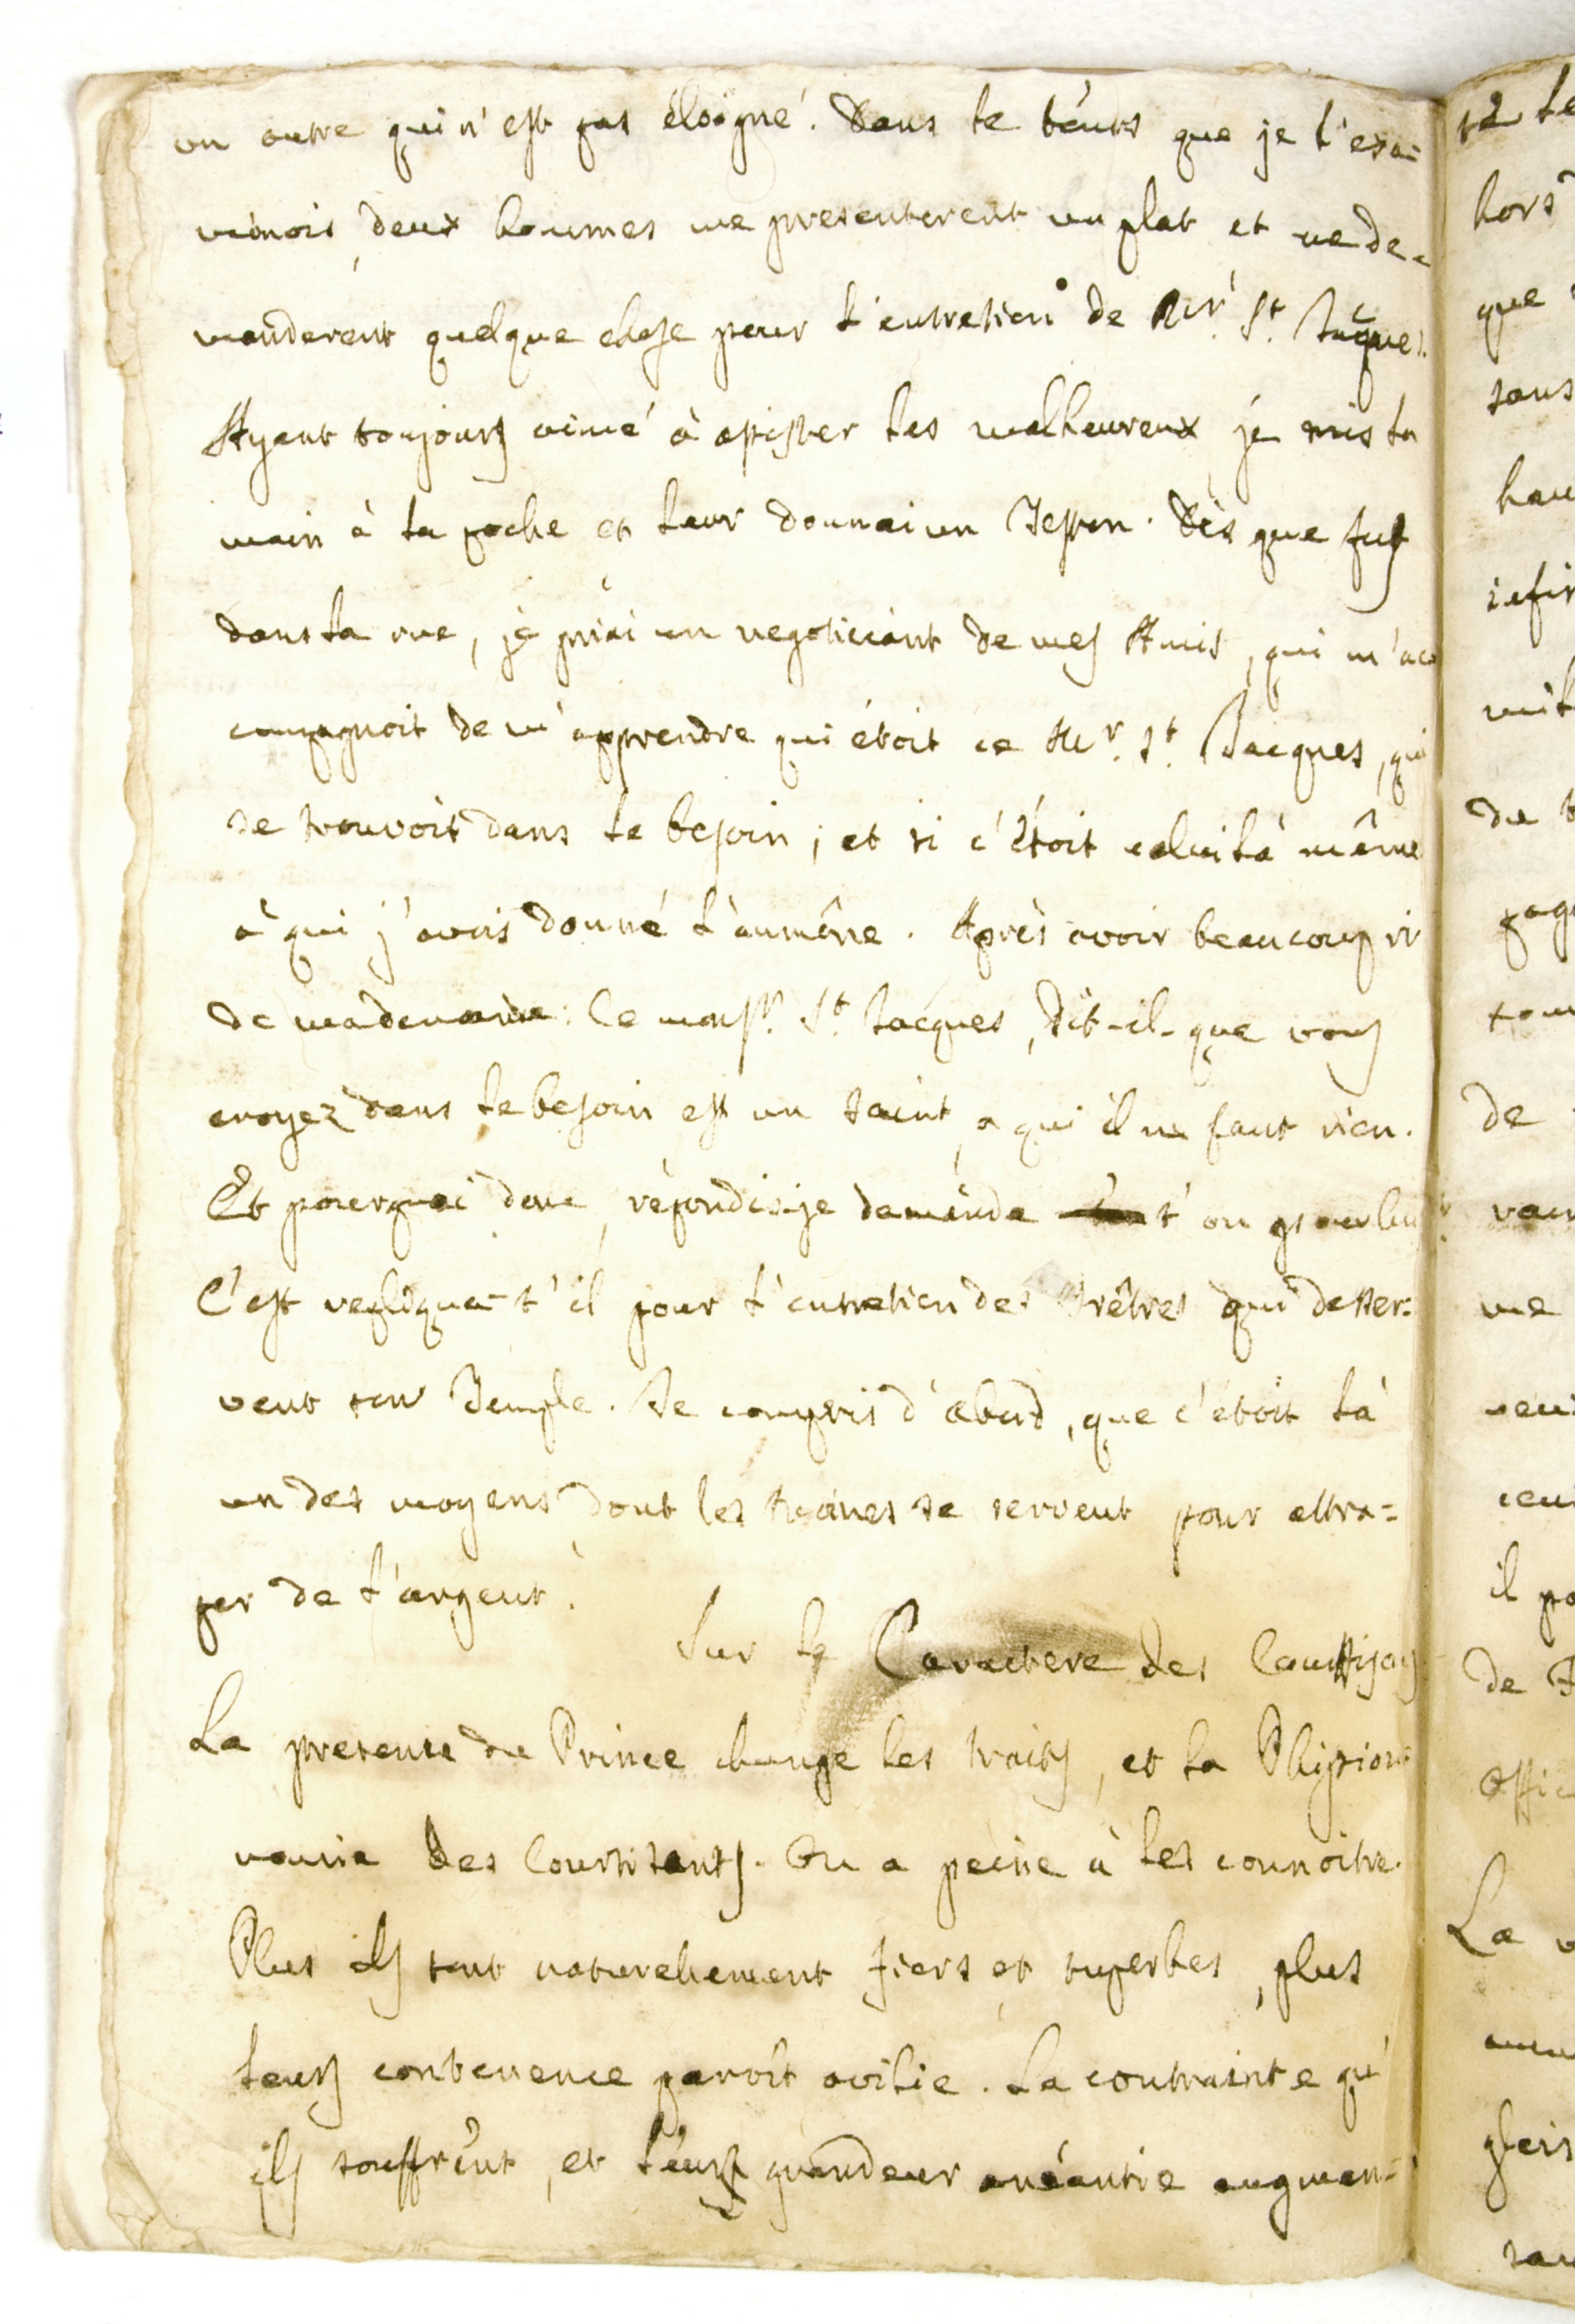 un autre qui n'est pas éloigné. Dans le têms que je l'exa=
minois, deux hommes me presenterent un plat et me de=
manderent quelque chose pour l'entretien de Mr. St. Jâques.
Ayant toujours aimé à assister les malheureux, je mis la
main à la poche et leur donnai un Teston. Dès que fus
dans la rue, je priai un negoticiant de mes Amis, qui m'ac
compagnoit de m'apprendre qui étoit ce Mr. St. Jacques, qui
se trouvoit dans le besoin; et si c'étoit celui là même
à qui j'avois donné l'aumône. Après avoir beaucoup ri
de ma demande: Ce monsr. St. Jacques, dit-il que vous
croyez dans le besoin est un saint, a qui il ne faut rien.
Et pourquoi donc, répondis-je demande t'on pour lui
C'est repliqua-t'il pour l'entretien des Prêtres qui desser=
vent son Temple. Je compris d'abord, que c'étoit là
un des moyens dont les Moines se servent pour attra=
per de l'argent.
Sur le Caractere des Courtisans
La presence du Prince change les traits, et la Phision
nomie des Courtisants. On a peine à les connoitre.
Plus ils sont naturellement fiers et superbes, plus
leurs contenence paroît avilie. La contrainte qu'
ils souffrent, et leurs grandeur anéantie augmen=
te le
hors
que
sans
hau
de
La
il